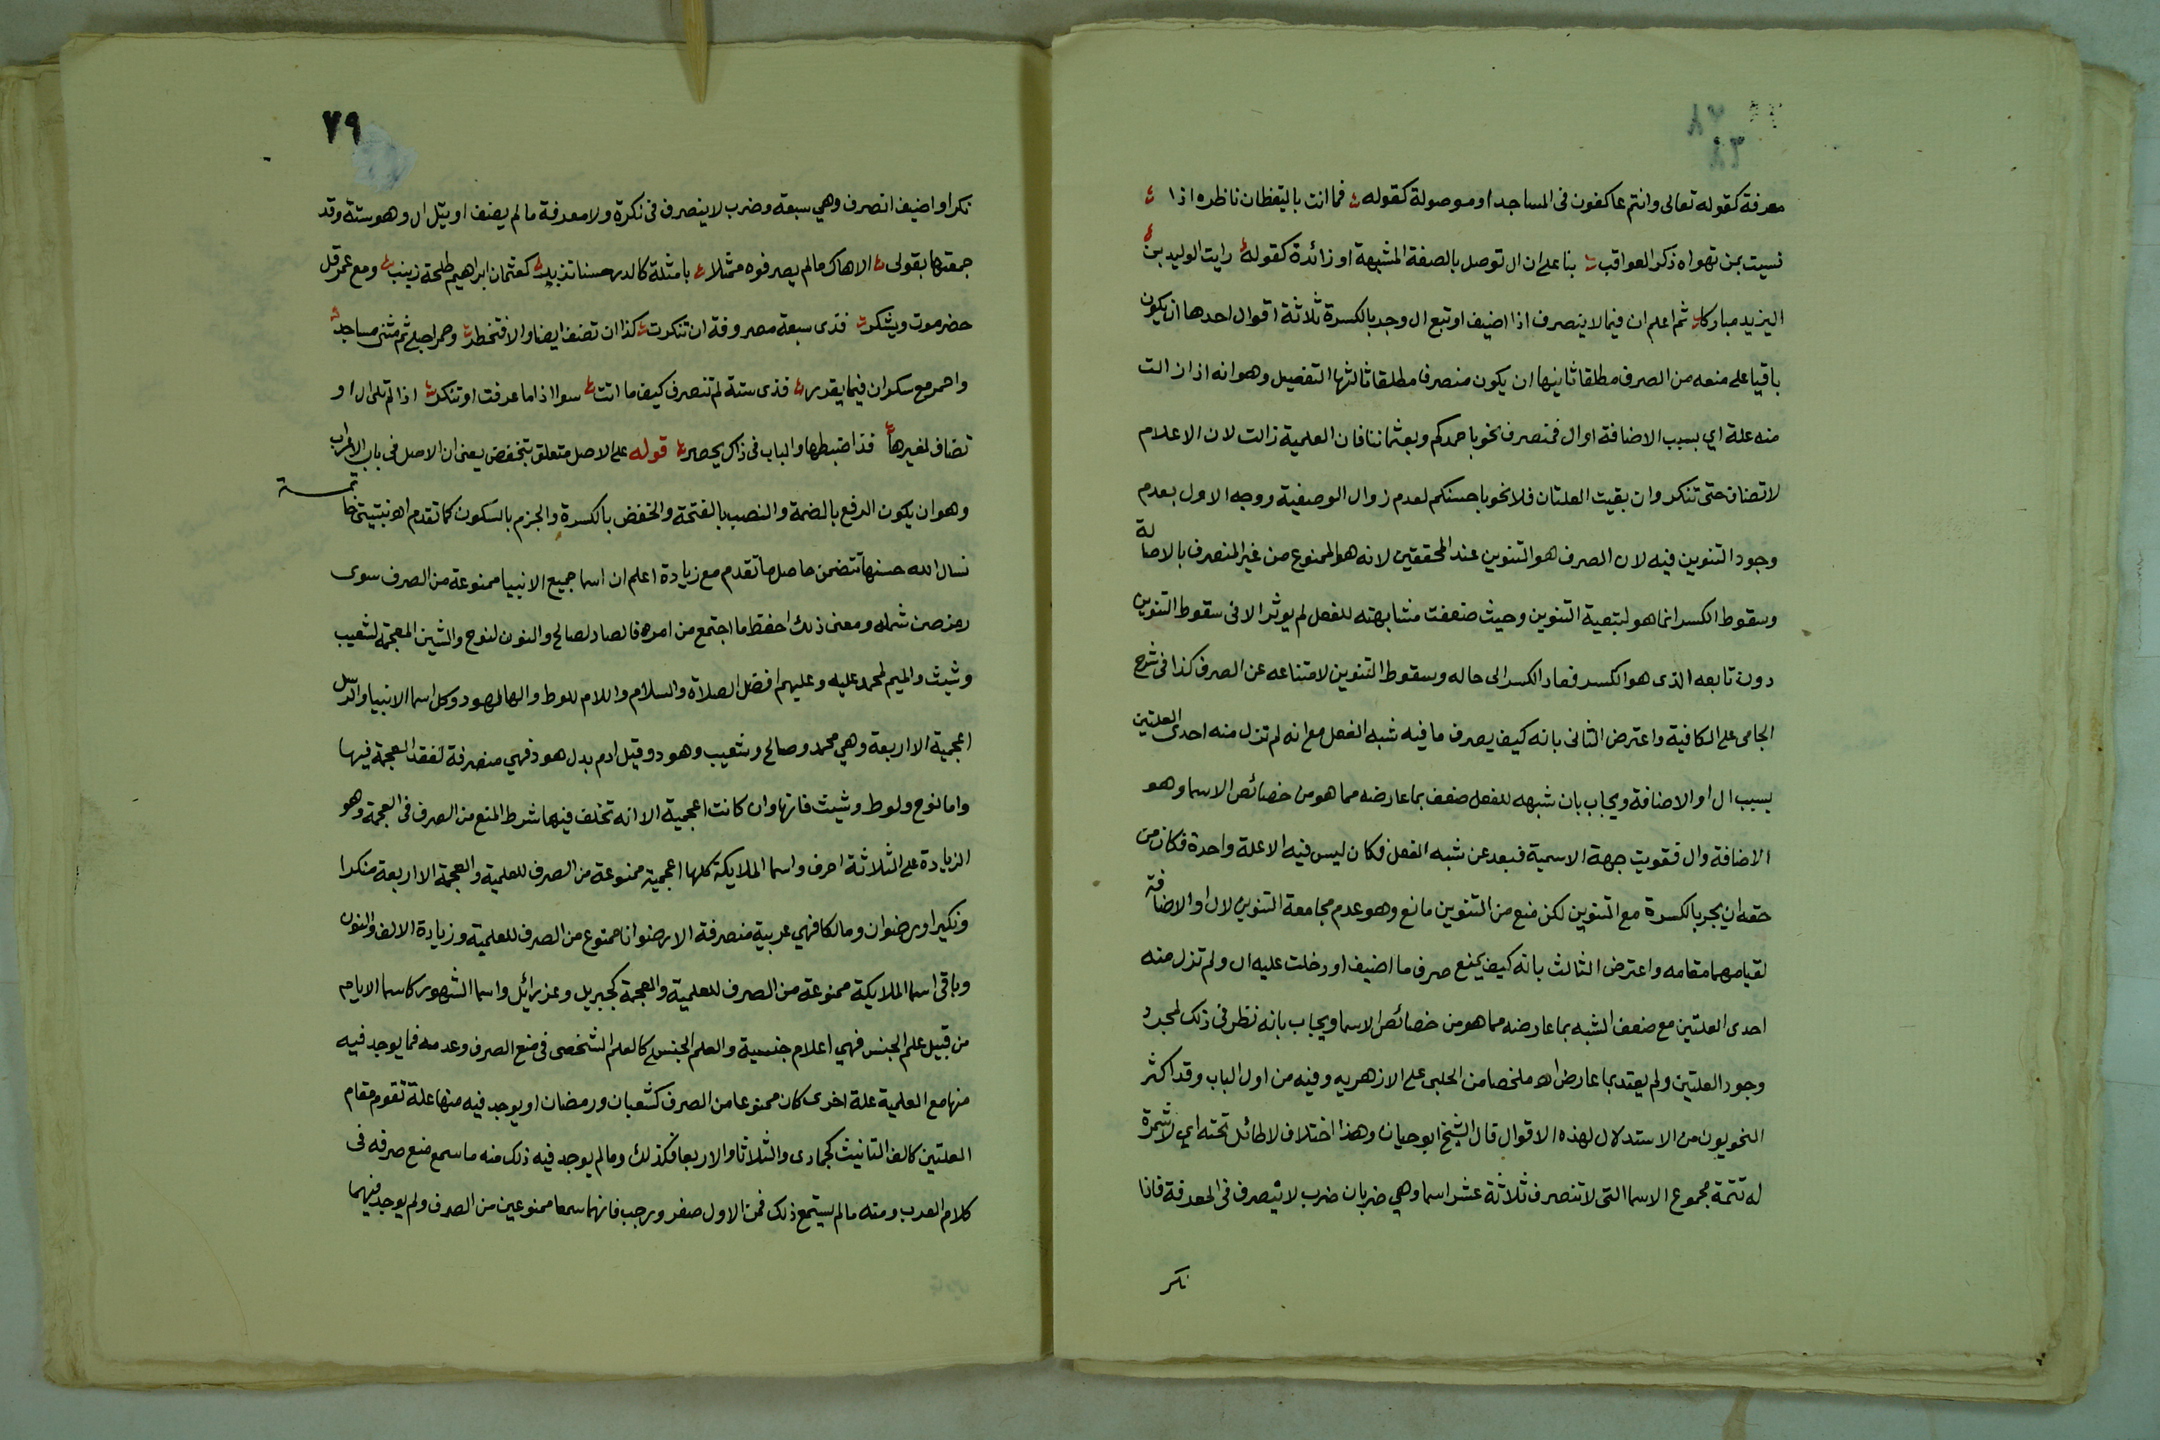 معرفة كقوله تعالى وانتم عاكفون فى المساجد او موصولة كقوله فما انت باليقظان ناظره اذا
نسيت بمن تهواه ذكر العواقب بنا على ان ال توصل بالصفة المشبهة او زائدة كقوله رايت الوليد بن
اليزيد مباركا ثم اعلم ان فيما لا ينصرف اذا اضيف او تبع ال وجر بالكسرة ثلاثة اقوال احدها ان يكون
باقيا على منعه من الصرف مطلقا ثانيها ان يكون منصرفا مطلقا ثالثها التفصيل وهو انه اذا زالت
منه علة اي بسبب الاضافة او ال فمنصرف نحو باحمدكم وبعثماننا فان العلمية زالت لان الاعلام
لا تضاف حتى تنكر وان بقيت العلتان فلا نحو باحسنكم لعدم زوال الوصفية ووجه الاول بعدم
وجود التنوين فيه لان الصرف هو التنوين عند المحققين لانه هو الممنوع من غير المنصرف بالاصالة
وسقوط الكسر انما هو لتبعية التنوين وحيث ضعفت مشابهته للفعل لم يوثر الا فى سقوط التنوين
دون تابعه الذى هو الكسر فعاد الكسر الى حاله وسقوط التنوين لامتناعه عن الصرف كذا فى شرح
الجامى على الكافية واعترض الثانى بانه كيف يصرف ما فيه شبه الفعل مع انه لم تزل منه احدى العلتين
بسبب ال او الاضافة ويجاب بان شبهه للفعل ضعف بما عارضه مما هو من خصائص الاسما وهو
الاضافة وال فقويت جهة الاسمية فبعد عن شبه الفعل فكان ليس فيه الا علة واحدة فكان من
حقه ان يجر بالكسرة مع التنوين لكن منع من التنوين مانع وهو عدم مجامعة التنوين لال او الاضافة
لقيامهما مقامه واعترض الثالث بانه كيف يمنع صرف ما اضيف او دخلت عليه ال ولم تزل منه
احدى العلتين مع ضعف الشبه بما عارضه مما هو من خصائص الاسما ويجاب بانه نظر فى ذلك لمجرد
وجود العلتين ولم يعتد بما عارض اه ملخصا من الحلبى على الازهريه وفيه من اول الباب وقد اكثر
النحويون من الاستدلال لهذه الاقوال قال الشيخ ابو حيان وهذا اختلاف لا طائل تحته اي لا ثمرة
له تتمة مجموع الاسما التى لا تنصرف ثلاثة عشر اسما وهي ضربان ضرب لا ينصرف فى المعرفة فاذا
نكر
٧٩
نكر او اضيف انصرف وهي سبعة وضرب لا ينصرف فى نكرة ولا معرفة ما لم يضف او يتل ال وهو ستة وقد
جمعتها بقولى الا هاك ما لم يصرفوه ممثلا بامثلة كالدر حسنا تزيد كعثمان ابراهيم طلحة زينب ومع عمر قل
حضرموت ويشكر فذى سبعة مصروفة ان تنكرت كذا ان تضف ايضا والا فتحظر وحمرا حبلى ثم مثنى مساجد
واحمر مع سكران فيما يقدر فذى ستة لم تنصرف كيف ما اتت سوا اذا ما عرفت او تنكر اذا لم تلى ال او
تضاف لغيرها فذا ضبطها والباب فى ذاك يحصر قوله على الاصل متعلق بتخفض يعنى ان الاصل فى باب الاعراب
وهو ان يكون الرفع بالضمة والنصب بالفتحة والخفض بالكسرة والجزم بالسكون كما تقدم اه نبتيتى خاتمـــة
نسال الله حسنها تتضمن حاصل ما تقدم مع زيادة اعلم ان اسما جميع الانبيا ممنوعة من الصرف سوى
رمز صن شمله ومعنى ذلك احفظ ما اجتمع من امره فالصاد لصالح والنون لنوح والشين المعجمة لشعيب
وشيث والميم لمحمد عليه وعليهم افضل الصلاة والسلام واللام للوط والها لهود وكل اسما الانبيا والرسل
اعجمية الا اربعة وهي محمد وصالح وشعيب وهود وقيل ادم بدل هود فهي منصرفة لفقد العجمة فيها
واما نوح ولوط وشيث فانها وان كانت اعجمية الا انه تخلف فيها شرط المنع من الصرف فى العجمة وهو
الزيادة على الثلاثة احرف واسما الملايكة كلها اعجمية ممنوعة من الصرف للعلمية والعجمة الا اربعة منكرا
ونكيرا ورضوان ومالكا فهي عربية منصرفة الا رضوانا ممنوع من الصرف للعلمية وزيادة الالف والنون
وباقى اسما الملايكة ممنوعة من الصرف للعلمية والعجمة كجبريل وعزرائل واسما الشهور كاسما الايام
من قبيل علم الجنس فهي اعلام جنسية والعلم الجنسى كالعلم الشخصى فى منع الصرف وعدمه فما يوجد فيه
منها مع العلمية علة اخرى كان ممنوعا من الصرف كشعبان ورمضان او يوجد فيه منها علة تقوم مقام
العلتين كالف التانيث كجمادى والثلاثا والاربعا فكذلك وما لم يوجد فيه ذلك منه ما سمع منع صرفه فى
كلام العرب ومنه ما لم يستمع ذلك فمن الاول صفر ورجب فانهما سمعا ممنوعين من الصرف ولم يوجد فيهما